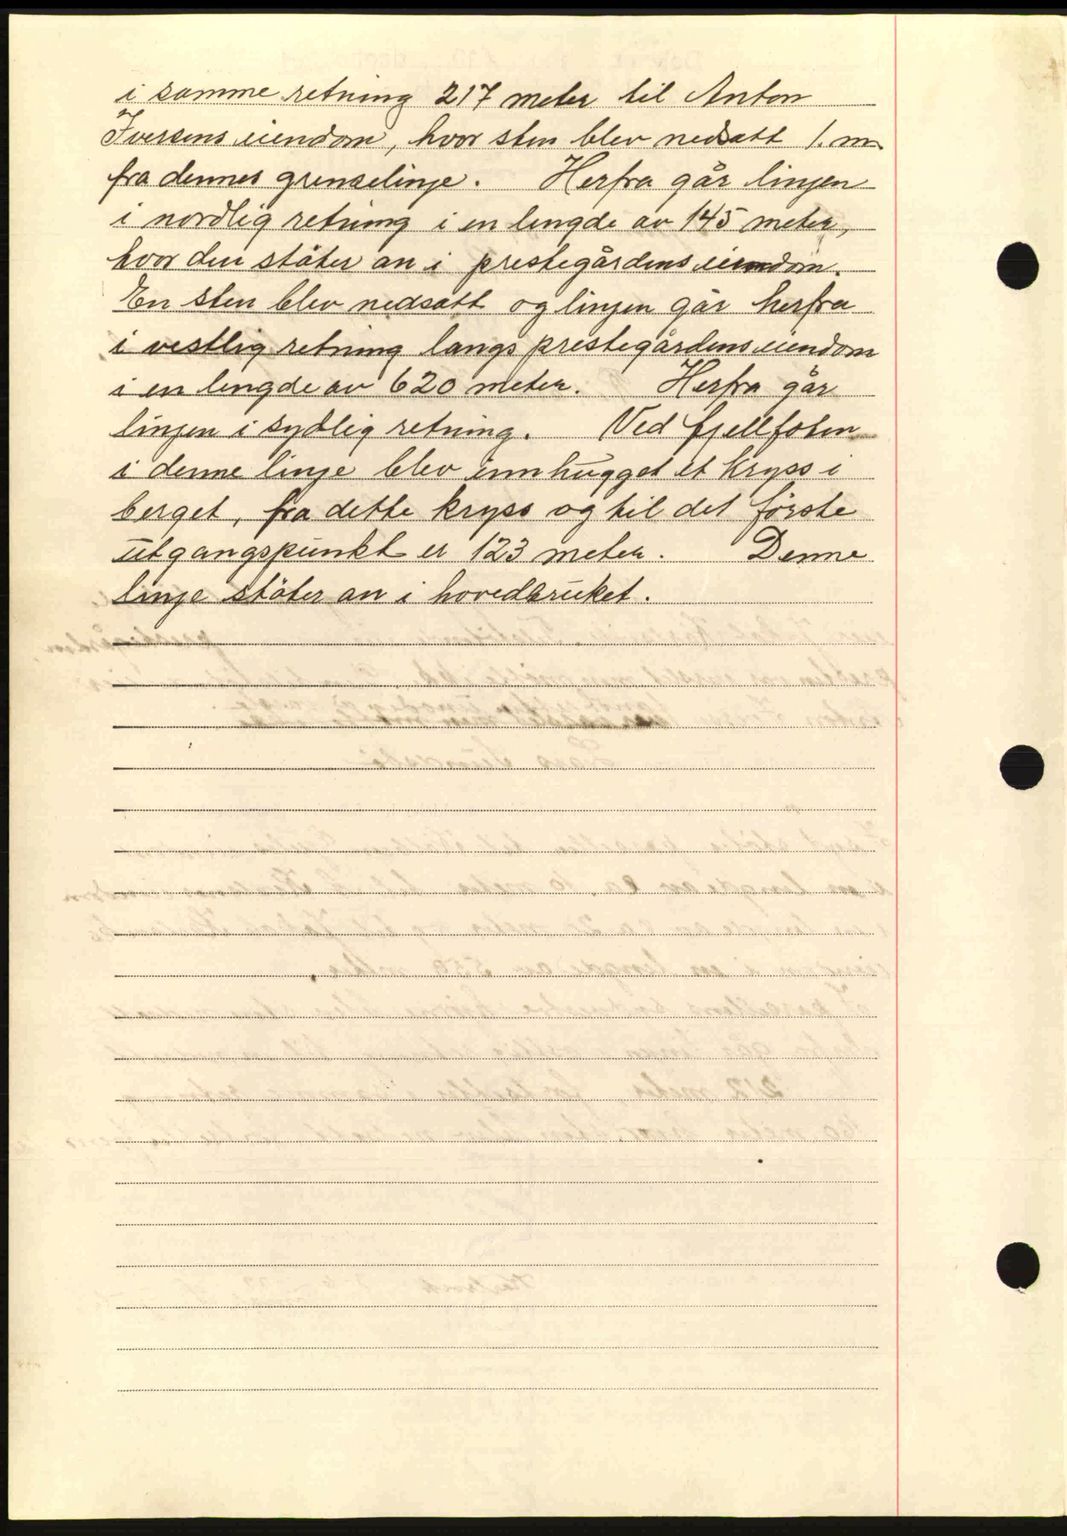 i samme retning 217 meter til Anton
Iversens eiendom, hvor sten blev nedsatt 1. m.
fra dennes grenselinje. Herfra går linjen
i nordlig retning i en lengde av 145 meter,
hvor den støter an i prestegårdens eiendom.
En sten blev nedsatt og linjen går herfra
i vestlig retning langs prestegårdens eiendom
i en lengde av 620 meter. Herfra går
linjen i sydlig retning. Ved fjellfoten
i denne linje blev innhugget et kryss i
berget, fra dette kryss og til det første
utgangspunkt er 123 meter. Denne
linje støter an i hovedbruket.